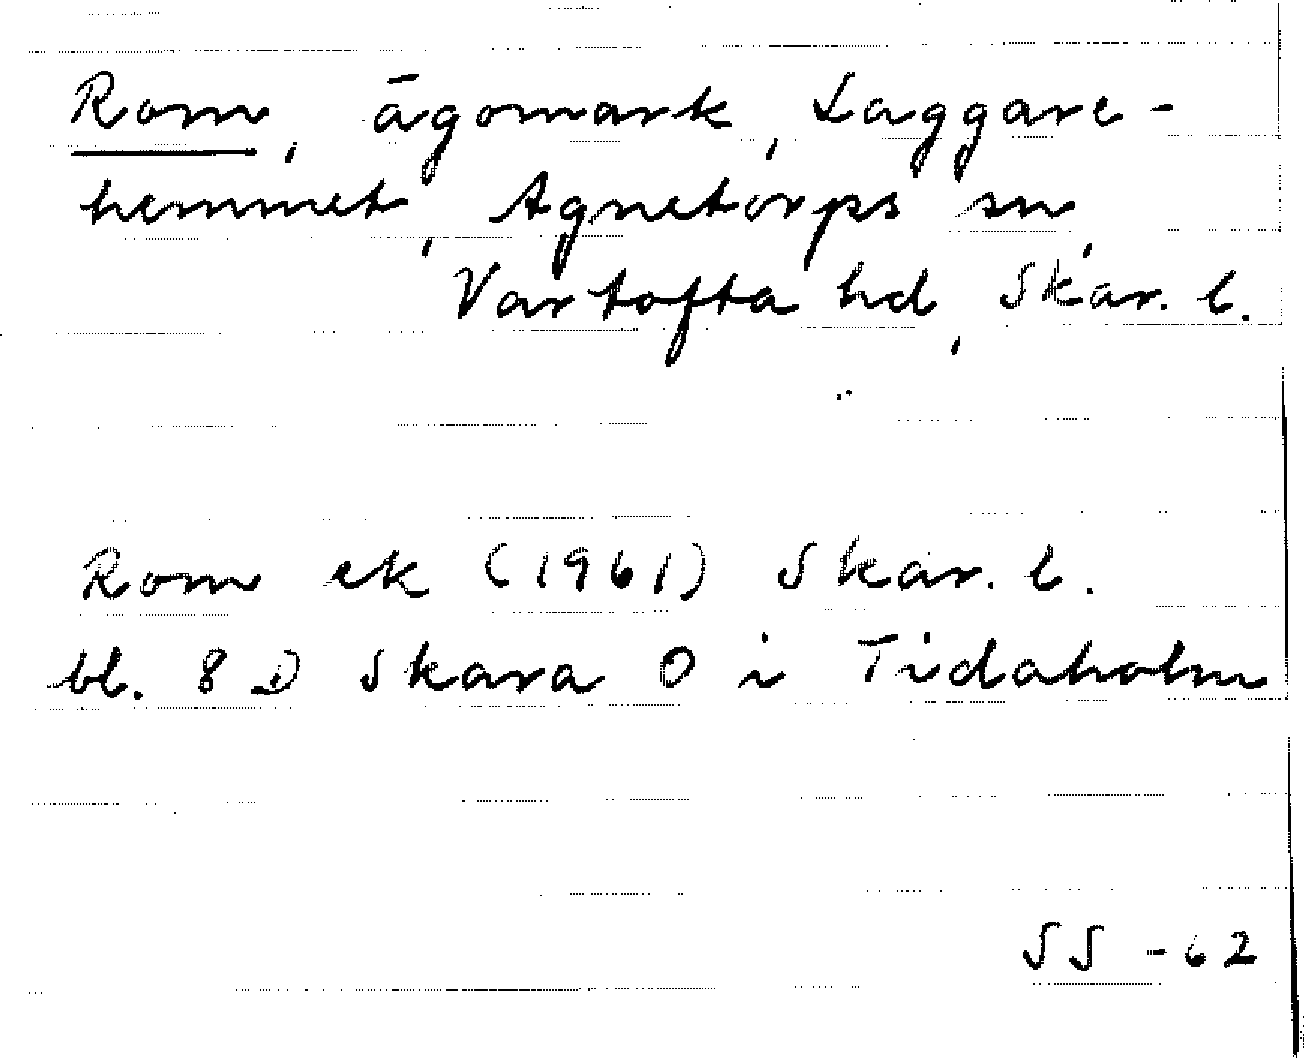 Rom, ägomark, Laggare-
hemmet, Agnetorps sn,
Vartofta hd, Skar. l.
Rom ek (1961) Skar. l.
bl. 8 D Skara O i Tidaholm
SS -62